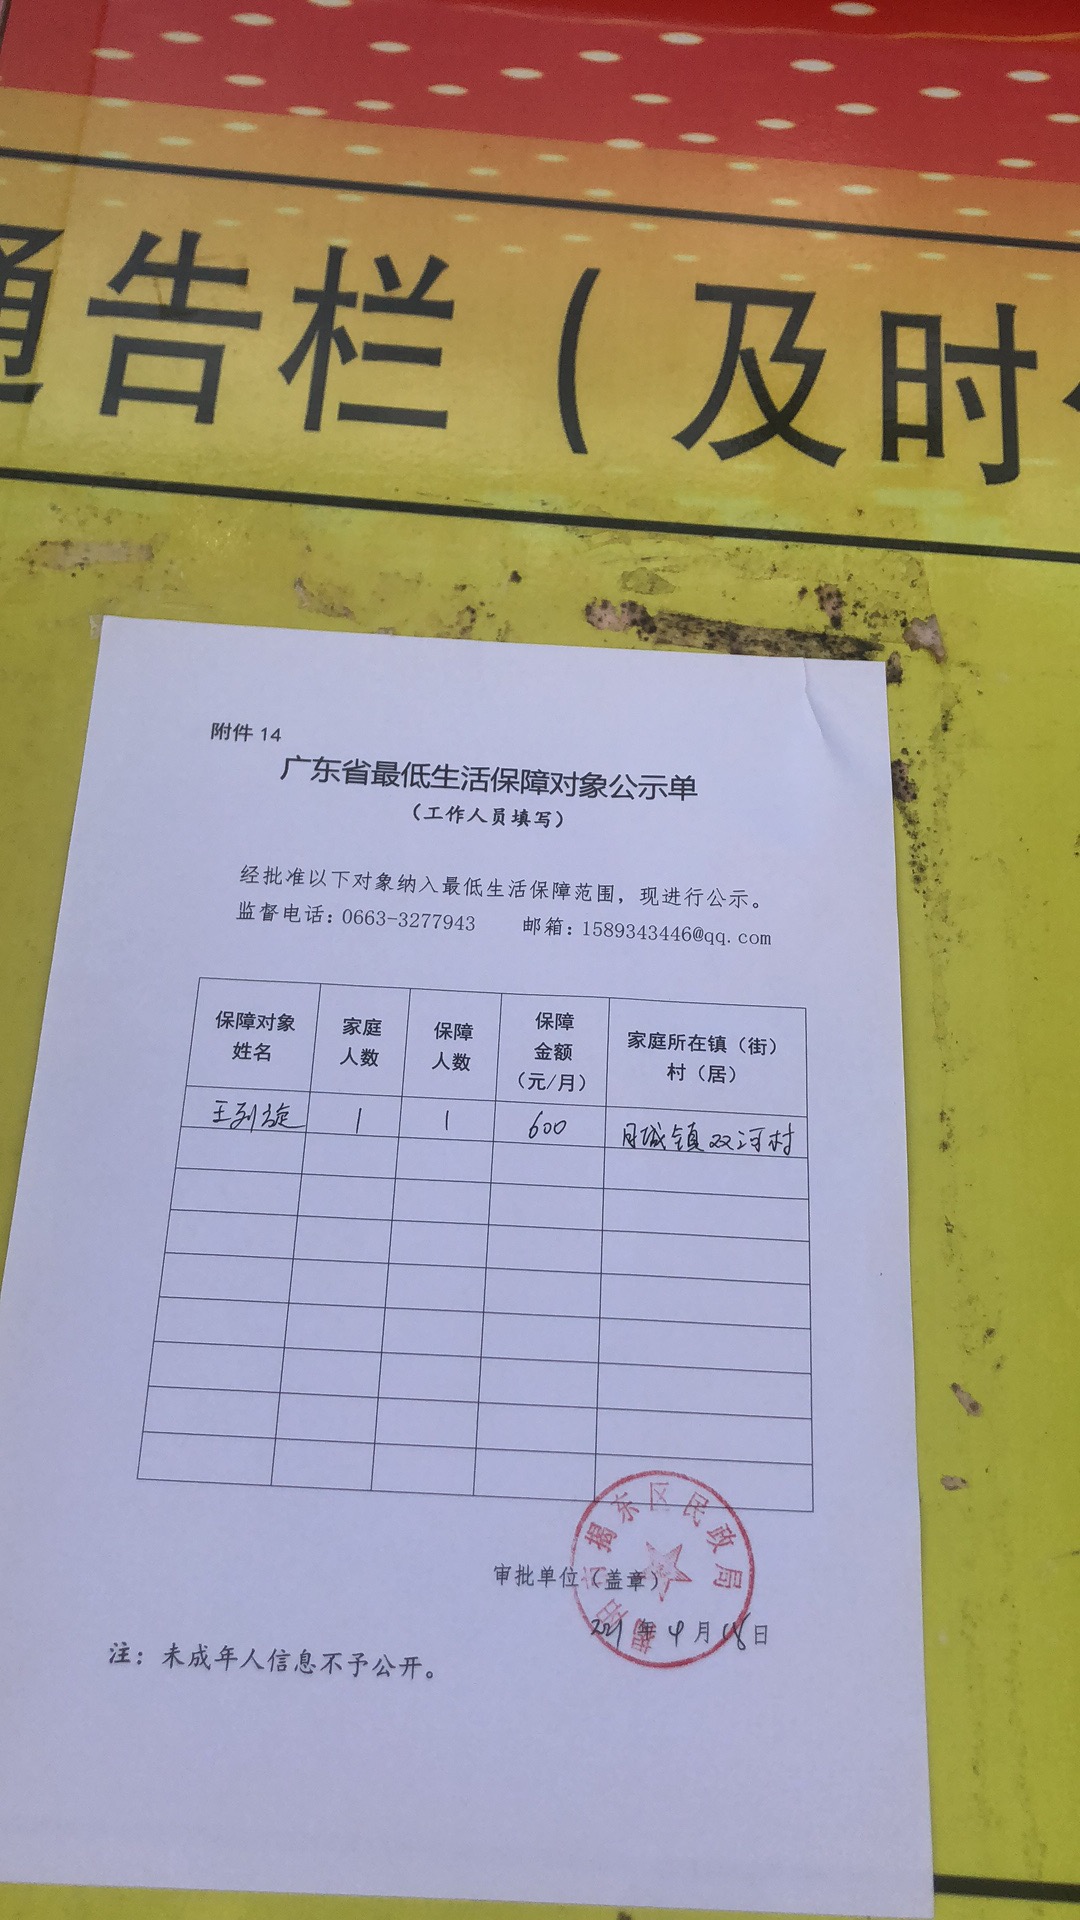 通告栏（及时
附件 14
广东省最低生活保障对象公示单
（工作人员填写）
经批准以下对象纳入最低生活保障范围，现进行公示。
监督电话：0663-3277943 邮箱：1589343446@qq.com
保障对象姓名 家庭人数 保障人数 保障金额（元/月） 家庭所在镇（街）村（居）
王列旋 1 1 600 月城镇双河村
揭阳市揭东区民政局
审批单位（盖章）
2021年4月18日
注：未成年人信息不予公开。